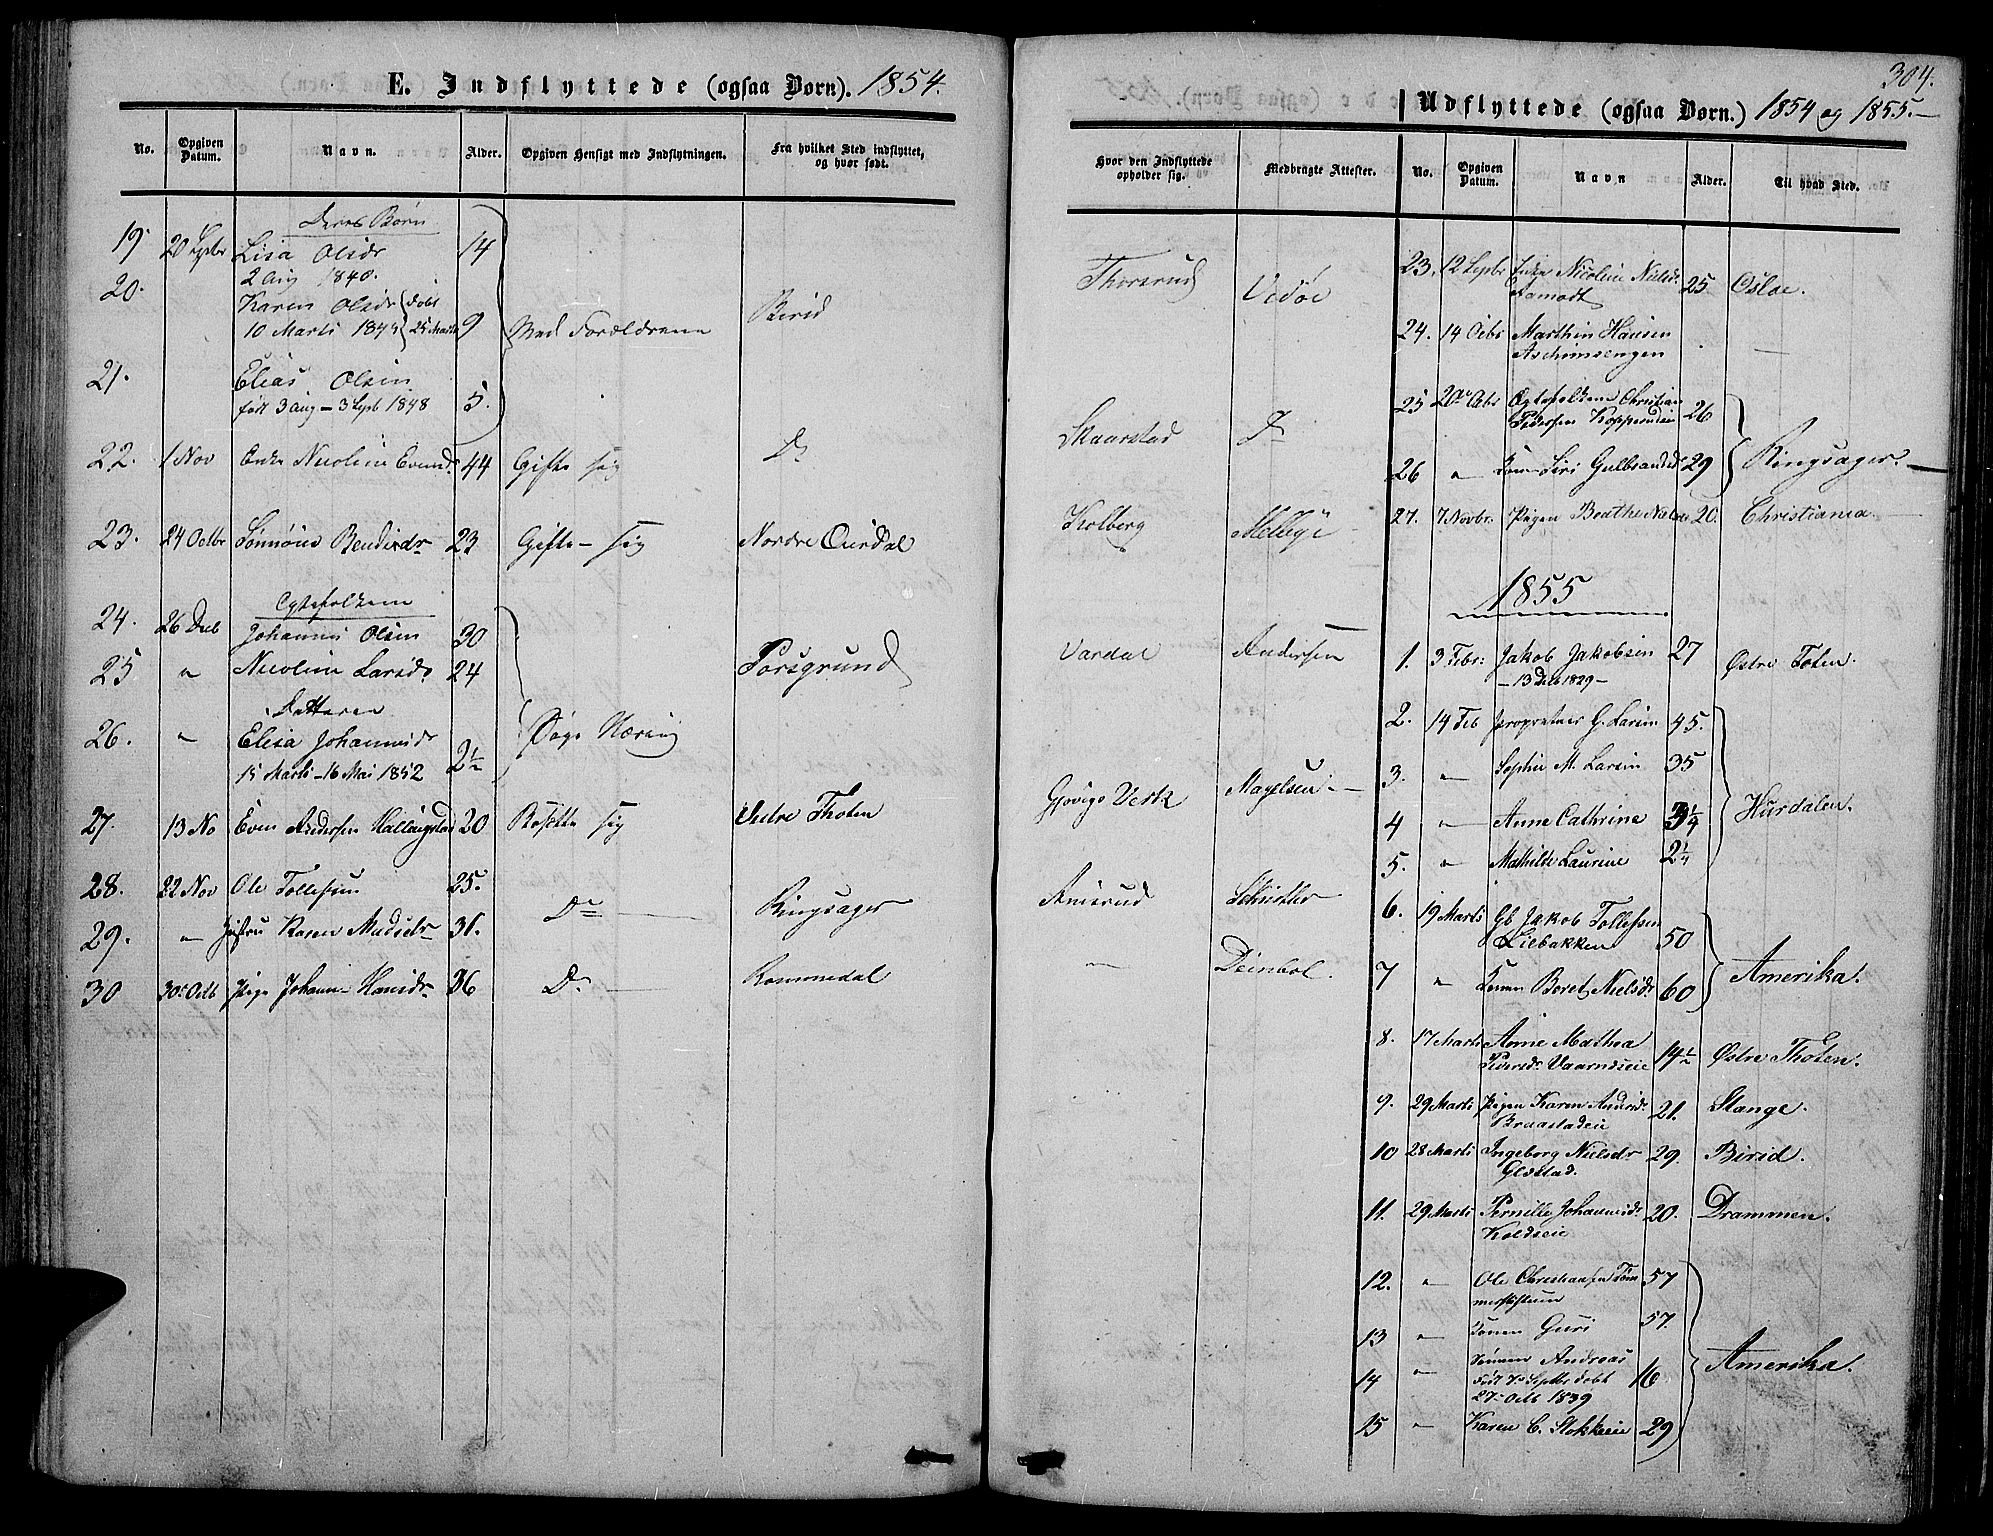 E. Indflyttede (ogsaa Børn). 1854.
No.
Opgiven Datum.
Navn.
Alder.
Opgiven Hensigt med Indflytningen.
Fra hvilket Sted indflyttet, og hvor født.
Deres Børn
19. 20 Septbr Lisa Olsdr 14
2 Aug 1840.
20. Karen Olsdr døbt
10 Marts 1844 25 Marts 9 Med Forældrene Birid
21. Elias Olsen
født 3 Aug – 3 Septb 1848 5.
22. 1 Nov Enke Nicoline Evensd. 44 Gifte sig Do
23. 24 Octbr Bendixdr 23 Gifte sig Nordre Ourdal
Egtefolkene
24. 26 Decb Johannes Olsen 30
25 " Nicoline Larsdr 24 Porsgrund
Datteren
26. " Elisa Johannesdr 2½ Søge Næring
15 Marts – 16 Mai 1852
27. 13 No Even Andersen Hallingstad 20 Bosætte sig Østre Thoten
28. 22 Nov Ole Tollefsen 25.
29. " Karen Madsdr 31. Do Ringsager
30 30 Octb Pige Johanne Hansdr 36 Do Rommedal
304.
Udflyttede (ogsaa Børn.) 1854 og 1855.
Hvor den Indflyttede opholder sig.
Medbragte Attester.
No.
Opgiven Datum.
Navn
Alder.
Til hvad Sted.
Thorsrud Vedøe
Skaarstad Do
Kolberg
Vardal Andersen
Gjøvigs Verk Magelsen
Amsrud
Deinbol.
23. 12 Septbr Enke Nicoline Nielsd. 25 Osloe.
Aamodt
24. 14 Octb Marthin Hansen
Aschimsengen
25 20de Octb Egtefolkene Christian 26
Pedersen Koppernæie
26 " Kone Siri Gulbrandsd 29 Ringsager.
27. 7 Novbr. Pigen Beathe Nielsd 20. Christiania
1855
1. 3 Febr: Jakob Jakobsen 27 Østre Toten.
– 13 Decb 1829 –
2. 14 Feb Proprietær G. Larsen 45.
3. " Sophie M. Larsen 35
4 " Anne Cathrine 3¼ Hurdalen.
5. " Mathilde Laurine 2¼
6. 19 Marts Gb Jakob Tollefsen 50
Liebakken
7 " Konen Boret Nielsdr 60 Amerika.
8. 17 Marts Anne Mathea
Pedersdr Vaarnæseie 14½ Østre Thoten.
9. 29 Marts Pigen Karen Andersd. 21. Stange.
Braastadeie
10 28 Marts Ingeborg Nielsdr 29. Birid.
Glæstad.
11. 29 Marts Pernille Johannesdr 20. Drammen.
Koldseie
12. " Ole Christiansen Tøm 57
13 " Konen Guri 57.
14 " Sønnen Andreas 16 Amerika.
født 7de Septbr døbt
27de Octb 1839
15 " Karen C. Stokkeeie 29